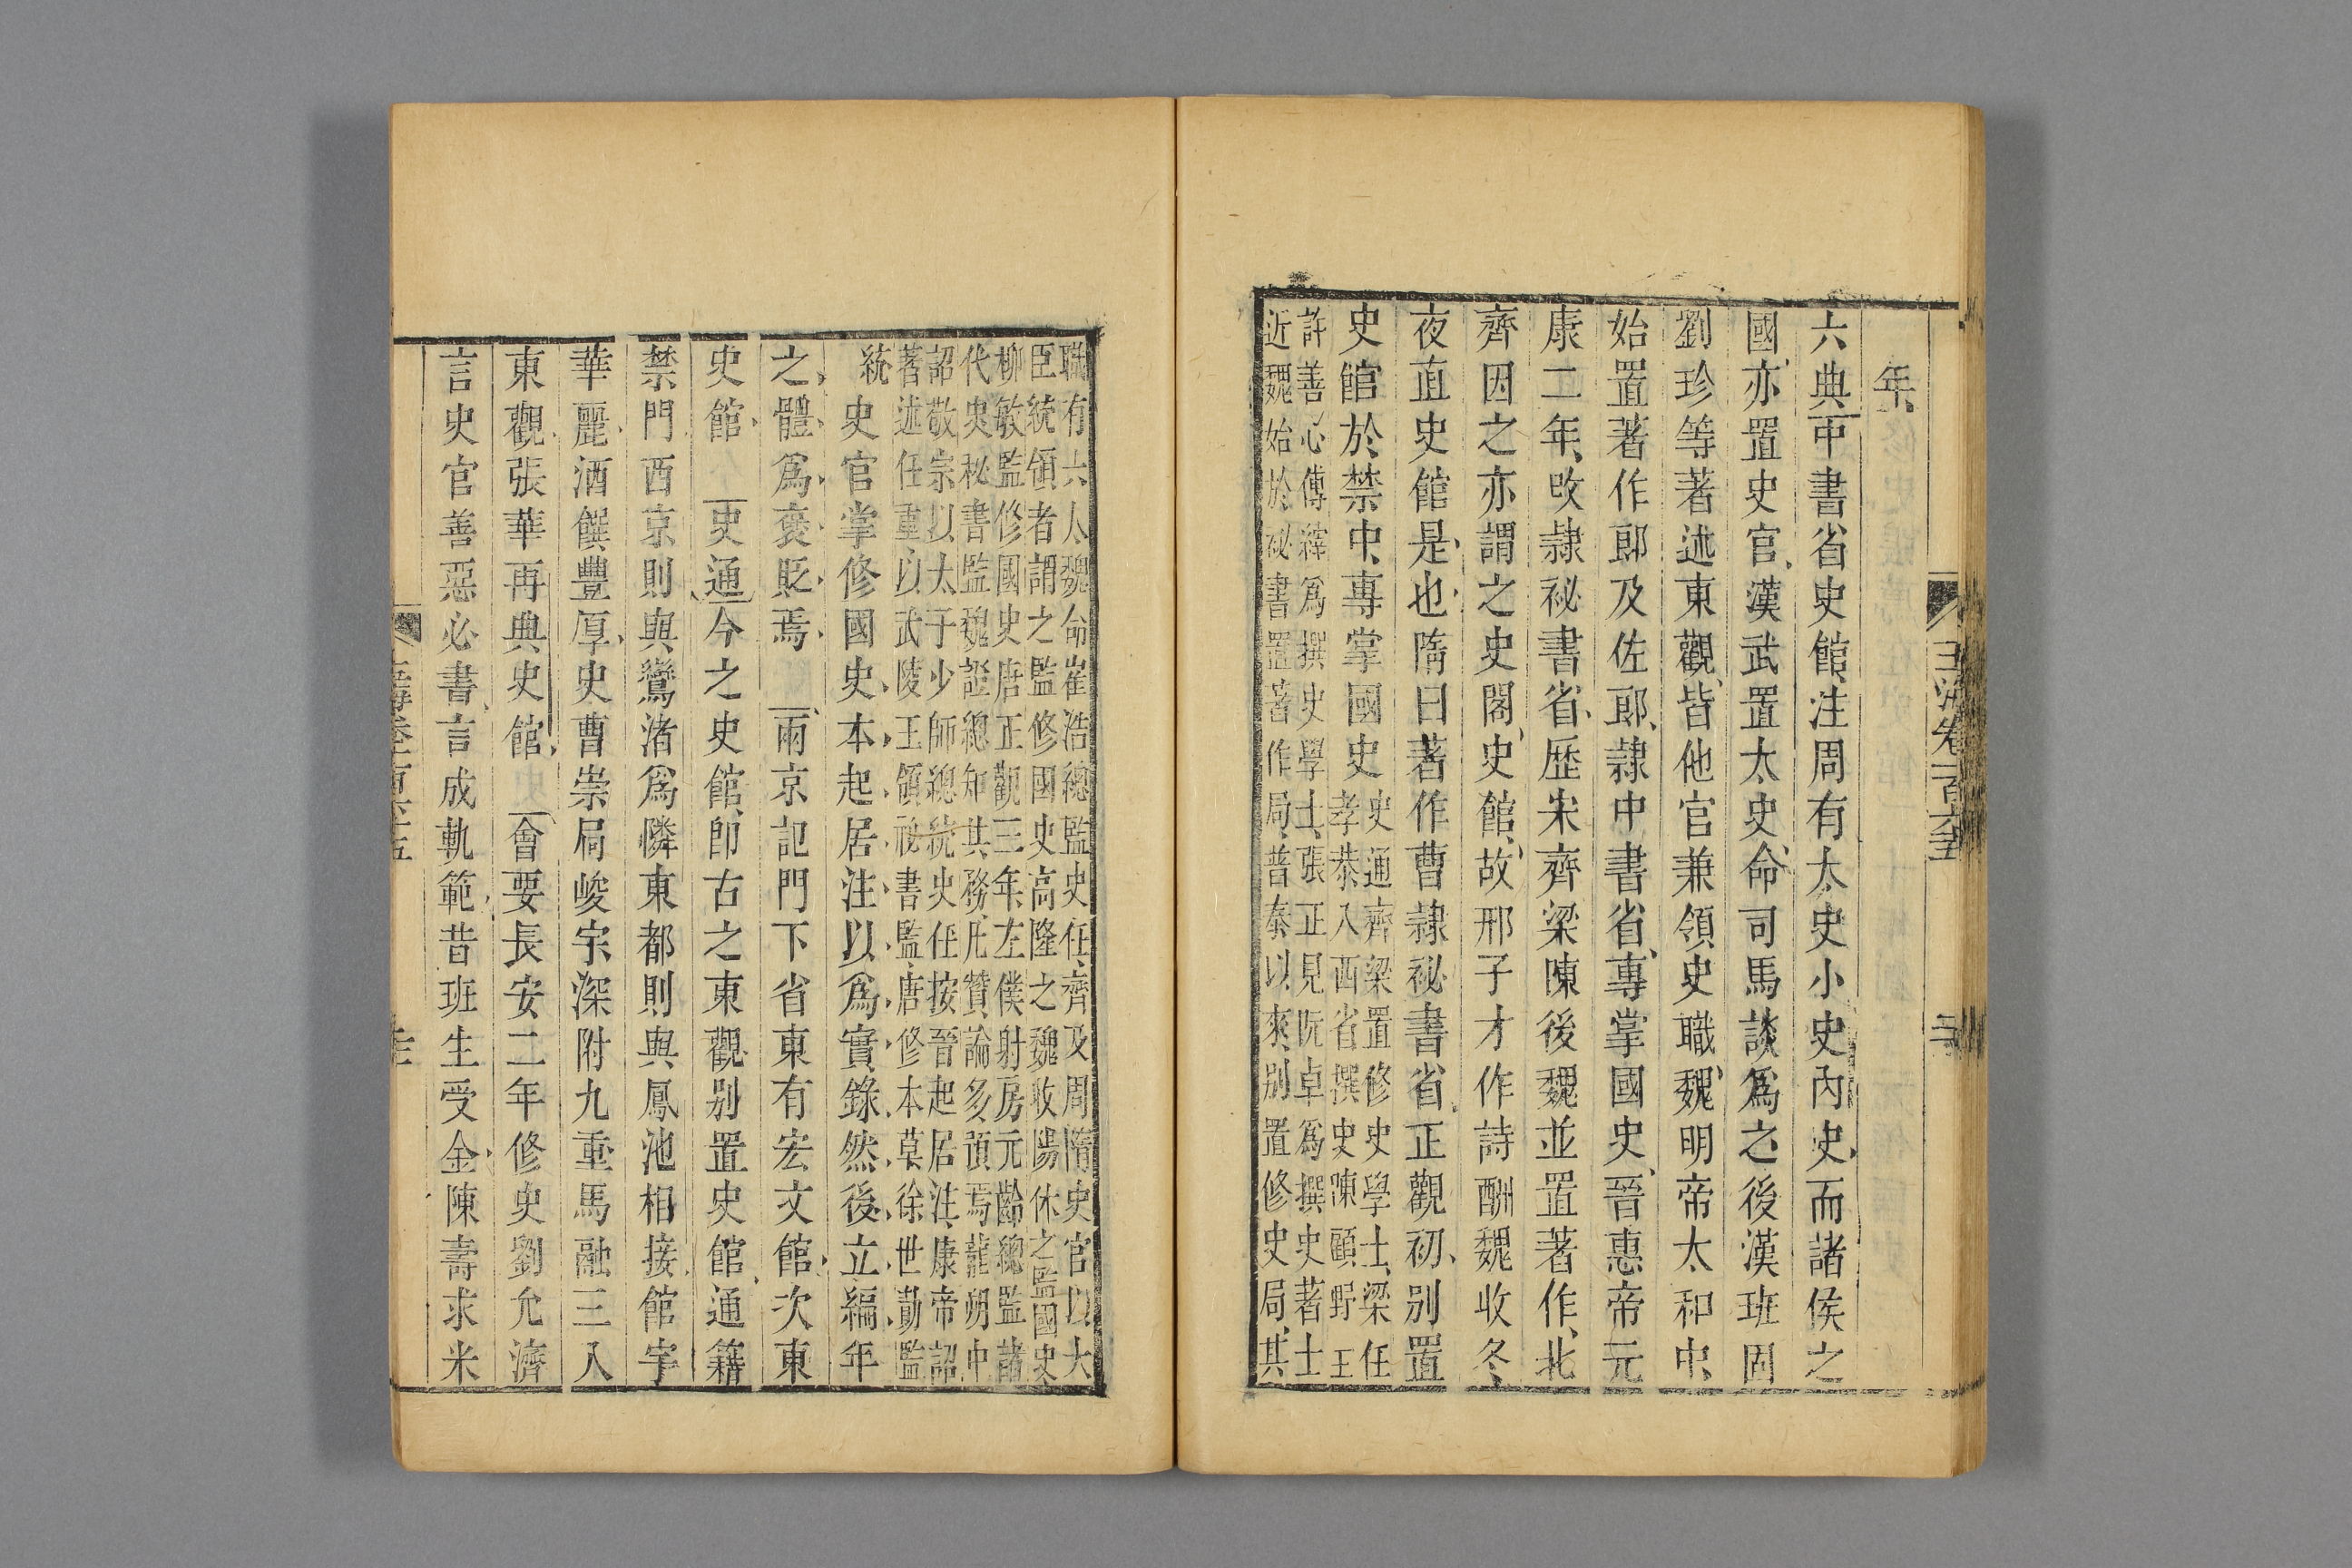 玉海卷一百六十五
年
六典中書省史館注周有太史小史內史而諸侯之
國亦置史官漢武置太史命司馬談爲之後漢班固
劉珍等著述東觀皆他官兼領史職魏明帝太和中
始置著作郎及佐郎隷中書省專掌國史晉惠帝元
康二年改隷祕書省歷宋齊梁陳後魏並置著作北
齊因之亦謂之史閣史館故邢子才作詩酬魏收冬
夜直史館是也隋曰著作曹隷祕書省正觀初別置
史館於禁中專掌國史
史通齊梁置修史學士梁任
孝恭入西省撰史陳顧野王
許善心傅縡爲撰史學士張正見阮卓爲撰史著士
近魏始於祕書置著作局普泰以來別置修史局其
職有六人魏命崔浩總監史任齊及周隋史官以大
臣統領者謂之監修國史高隆之魏收陽休之監國史
柳敏監修國史唐正觀三年左僕射房元齡總監諸
代史祕書監魏證總知其務凡贊論多預焉龍朔中
詔敬宗以太子少師總統史任按晉起居注康帝詔
著述任重以武陵王領祕書監唐修本草徐世勣監
統
史官掌修國史本起居注以爲實錄然後立編年
之體爲褒貶焉 兩京記門下省東有宏文館次東
史館 史通今之史館卽古之東觀別置史館通籍
禁門西京則與鸞渚爲隣東都則與鳳池相接館宇
華麗酒饌豐厚 史曹崇扃峻宇深附九重馬融三入
東觀張華再典史館 會要長安二年修史劉允濟
言史官善惡必書言成軌範昔班生受金陳壽求米